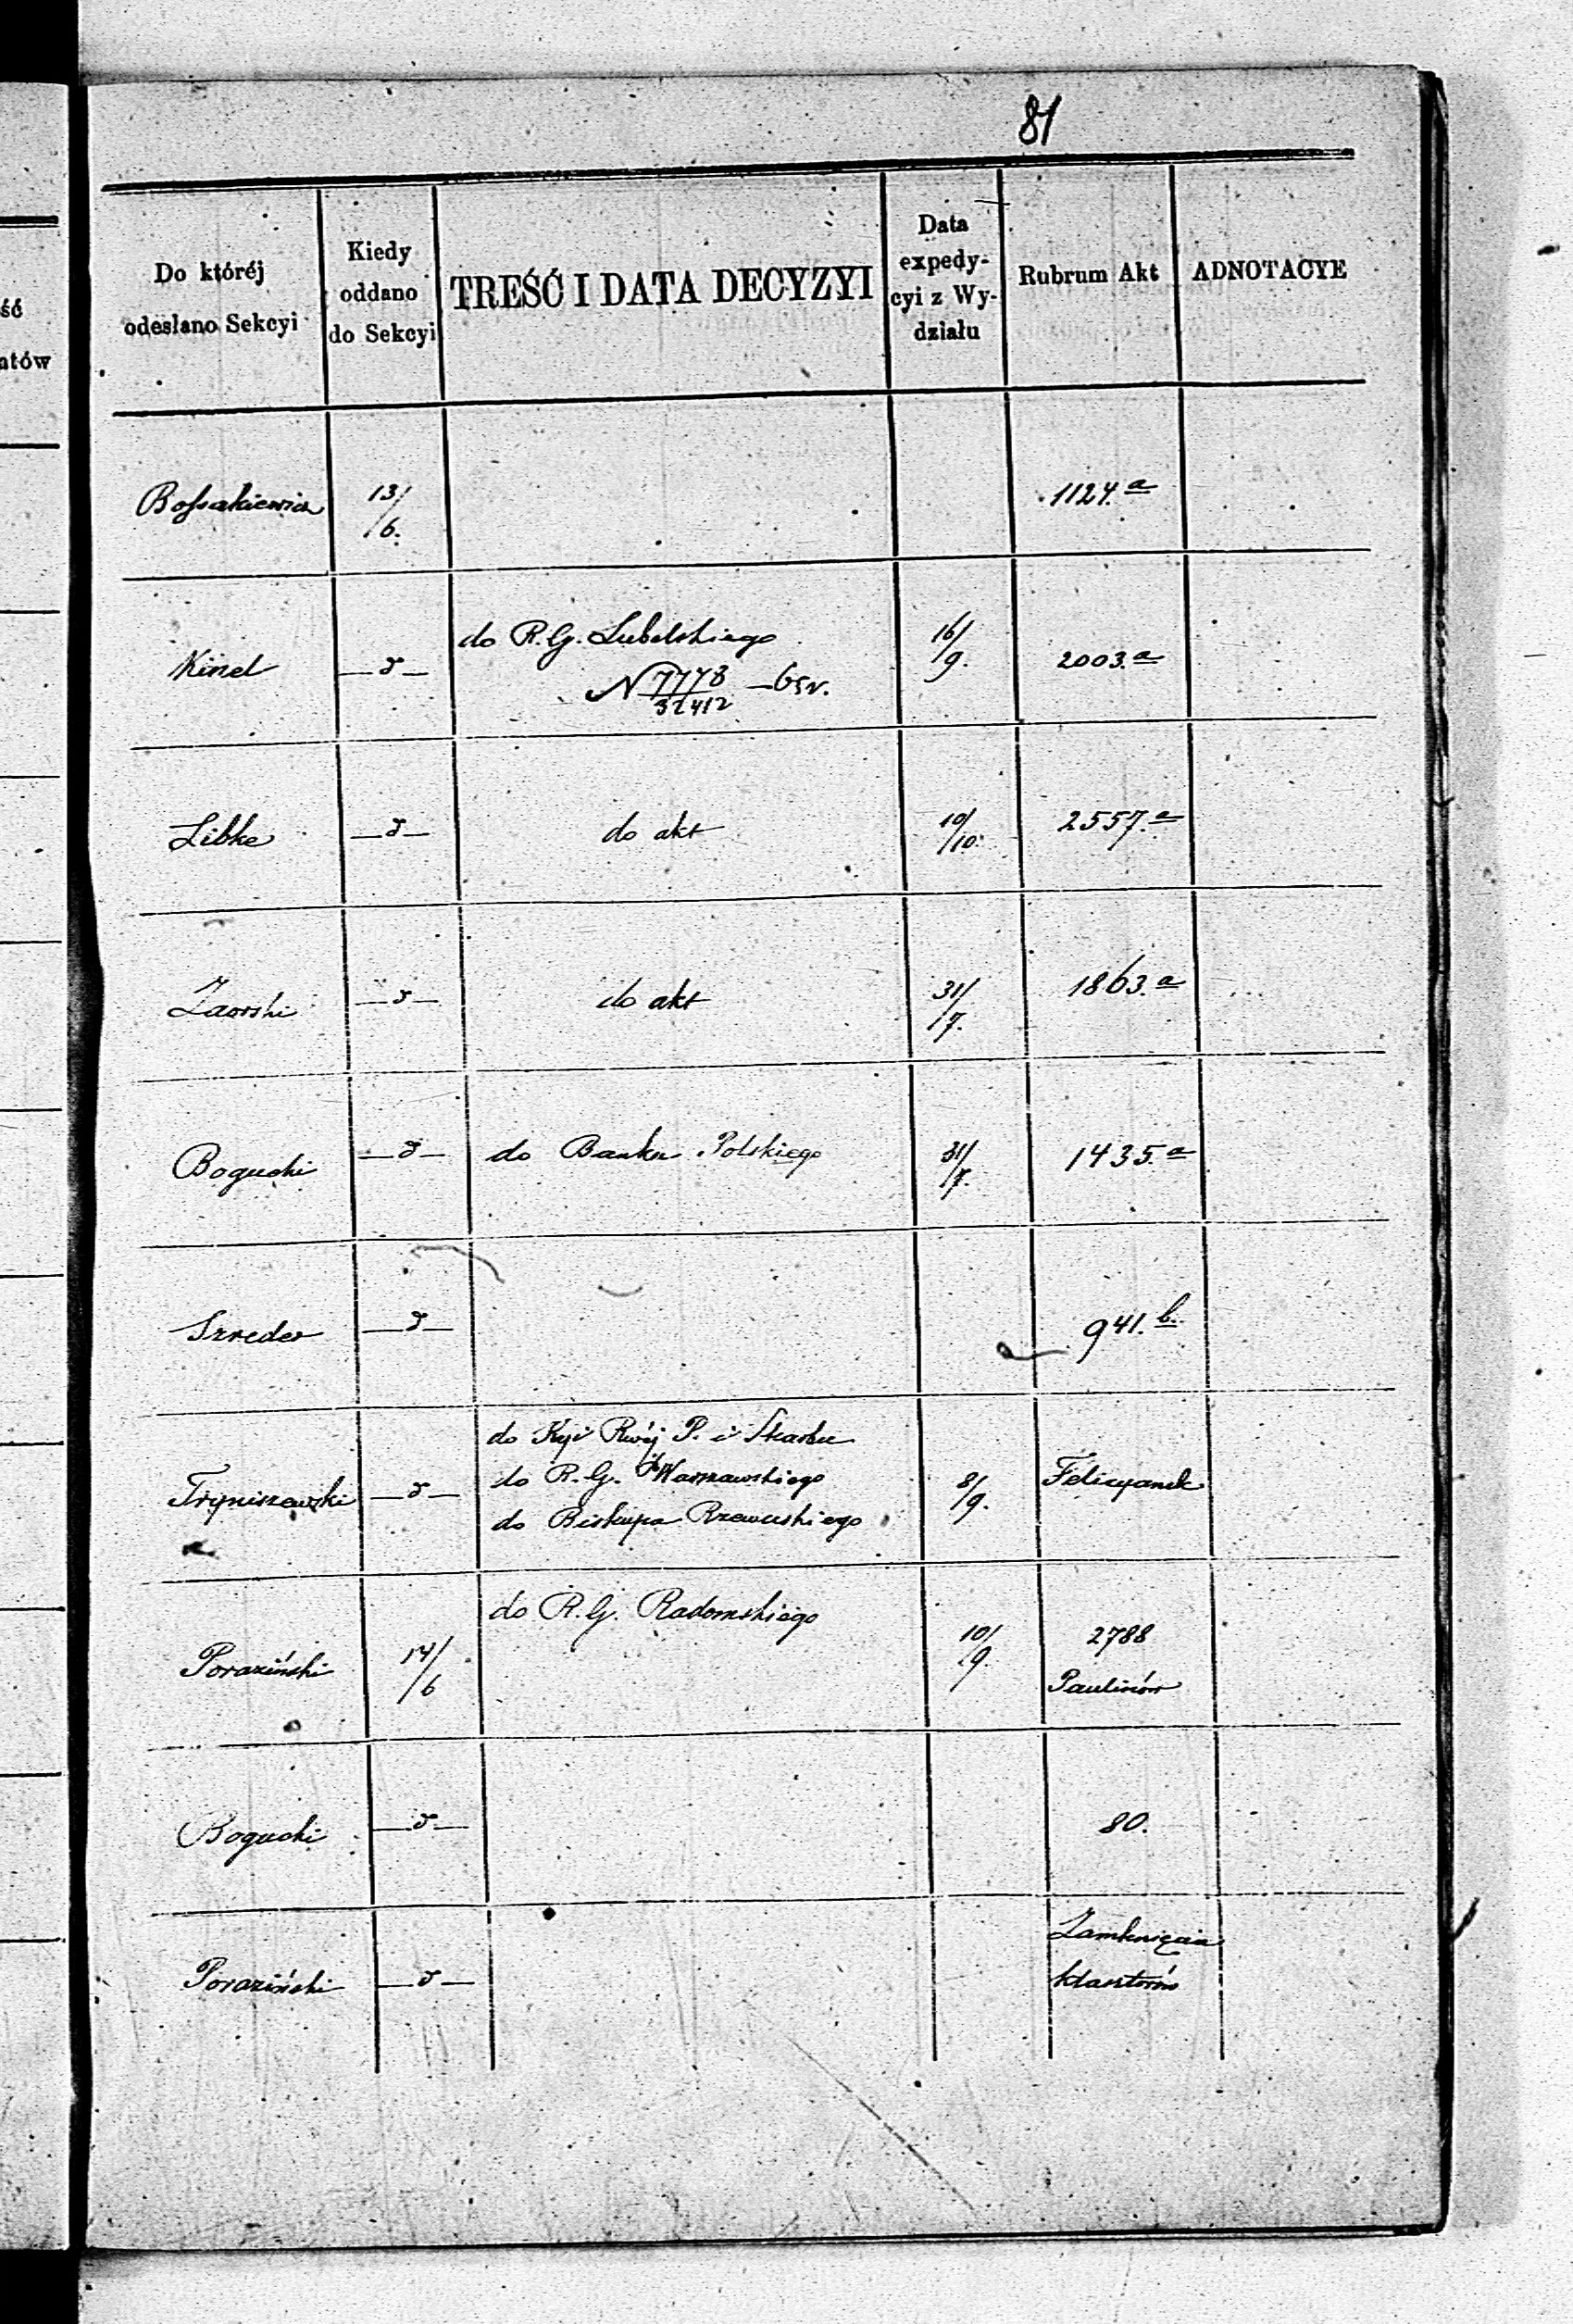 81
ść
ntów
Do któréj
odesłano Sekcyi
Kiedy
oddano
do Sekcyi
TREŚĆ I DATA DECYZYI
Data
expedy-
cyi z Wy-
działu
Rubrum Akt
ADNOTACYE
Bossakiewicz 13/6. 1124.a
Kinel —d— do R. G. Lubelskiego 16/9. 2003.a
N 7778/32412
Libke —d— do akt 10/10. 2557.a
Zaorski —d— do akt 31/7. 1863.a
Bogucki —d— do Banku Polskiego 31/7. 1435.a
Szreder —d— 941.b.
do Kyi Rwéj P. i Skarbu
Trzyniszewski —d— do R. G. Warszawskiego 8/9. Felicyanek
do Biskupa Rzewuskiego
do R. G. Radomskiego
Poraziński 14/6 10/9. 2788
Paulinów
Bogucki —d— 80.
Zamknięcia
Poraziński —d— klasztorów